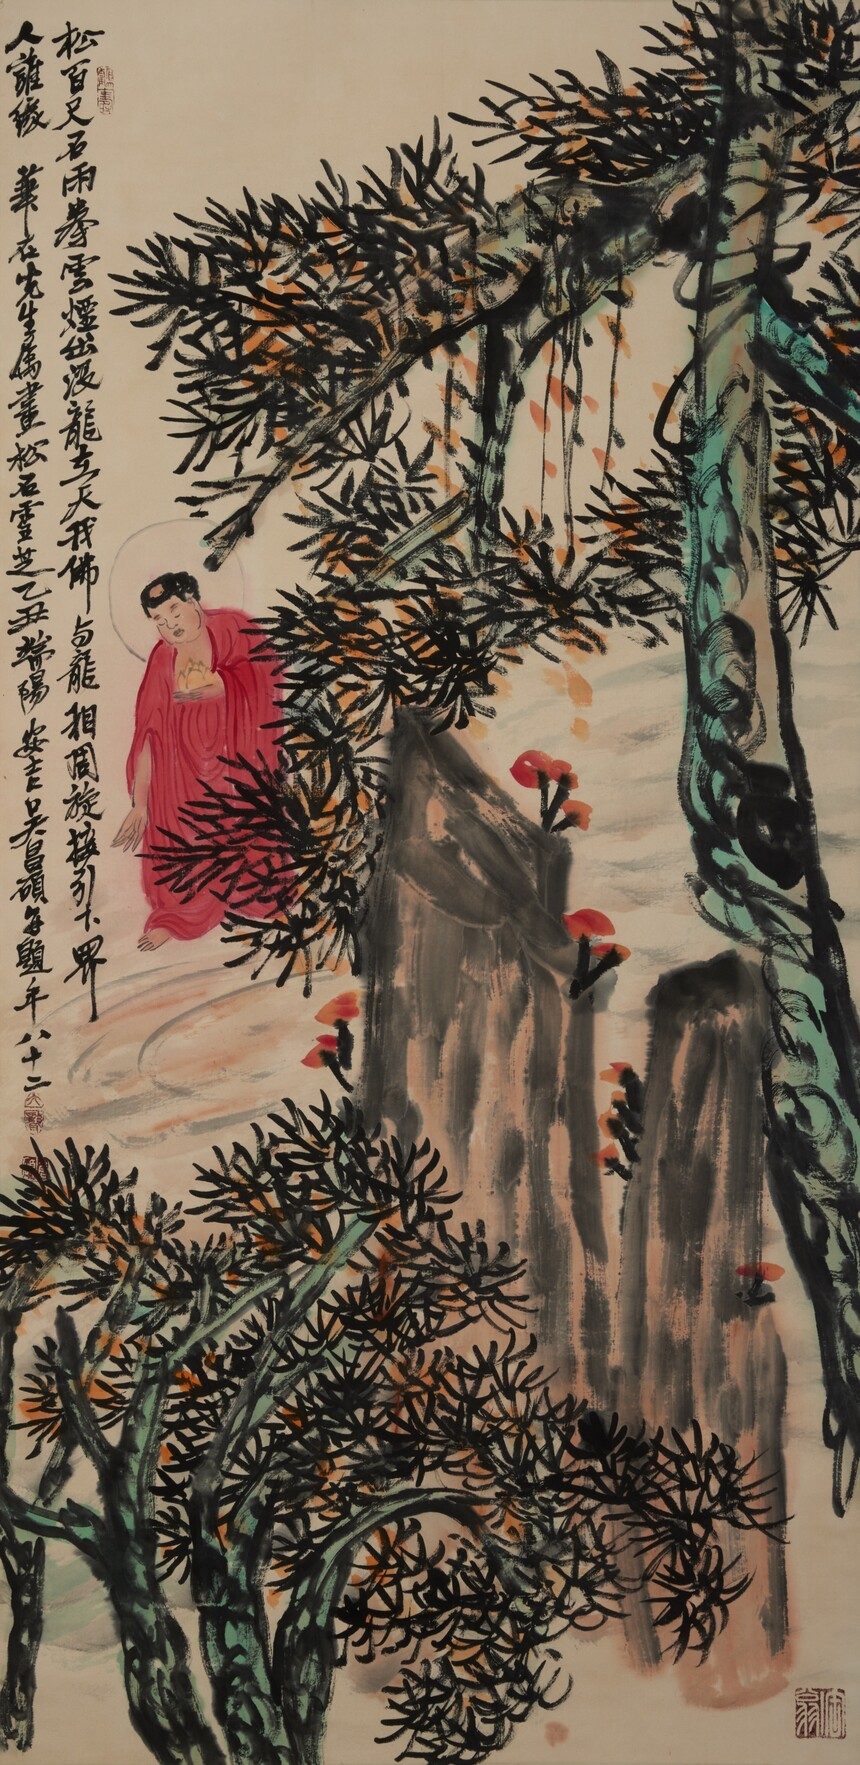 松百尺石兩拳雲煙出沒龍立天我佛與龍相周旋接引下界
人誰緣 華在先生屬畫松石靈芝乙丑端陽安吉吳昌碩年八十二